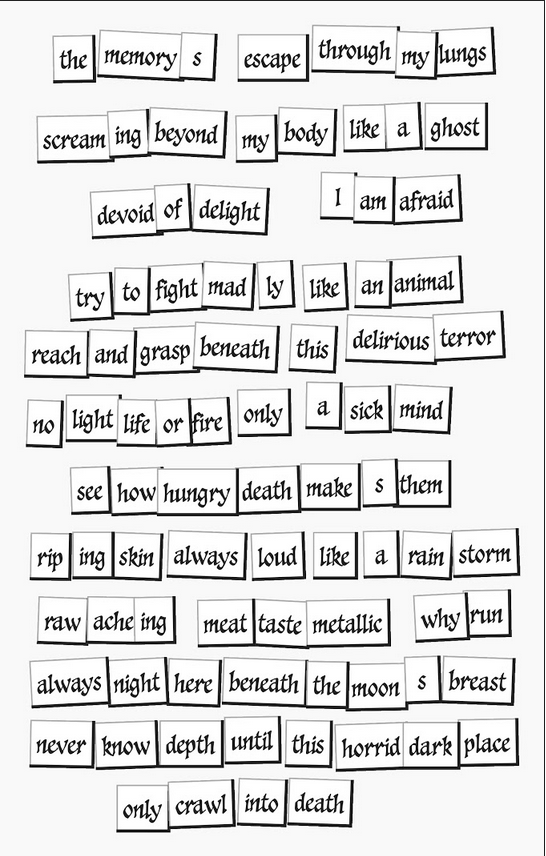 the memory s escape through my lungs
scream ing beyond my body like a ghost
devoid of delight I am afraid
try to fight mad ly like an animal
reach and grasp beneath this delirious terror
no light life or fire only a sick mind
see how hungry death make s them
rip ing skin always loud like a rain storm
raw ache ing meat taste metallic why run
always night here beneath the moon s breast
never know depth until this horrid dark place
only crawl into death